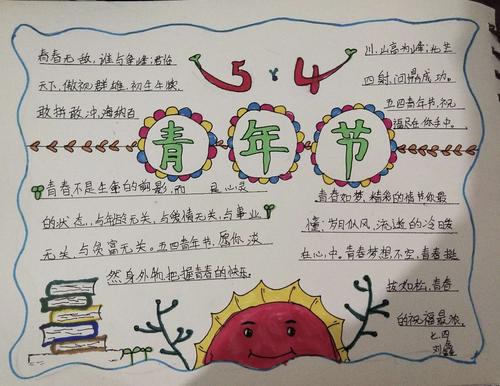 青春无敌,谁与争峰;君临
天下,傲视群雄,初生牛犊,
敢拼敢冲,海纳百
川,山高为峰;光芒
四射,问鼎成功。
五四青年节,祝
福尽在你手中。
5.4
青年节
青春不是生命的剪影,而 是心灵
的状态,与年龄无关,与爱情无关,与事业
无关,与贫富无关。五四青年节,愿你,淡
然身外物,把握青春的快乐。
青春如梦,精彩的情节你最
懂;岁月似风,流逝的冷暖
在心中。青春梦想不空,青春挺
拔如松,青春
的祝福最浓。
七四
刘鑫